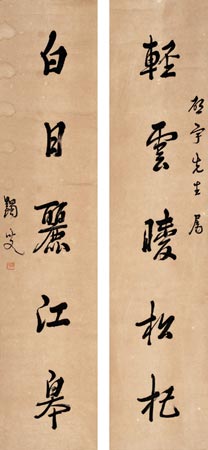 宇先生屬
輕雲曖松杞
白日麗江皋
蠲叟